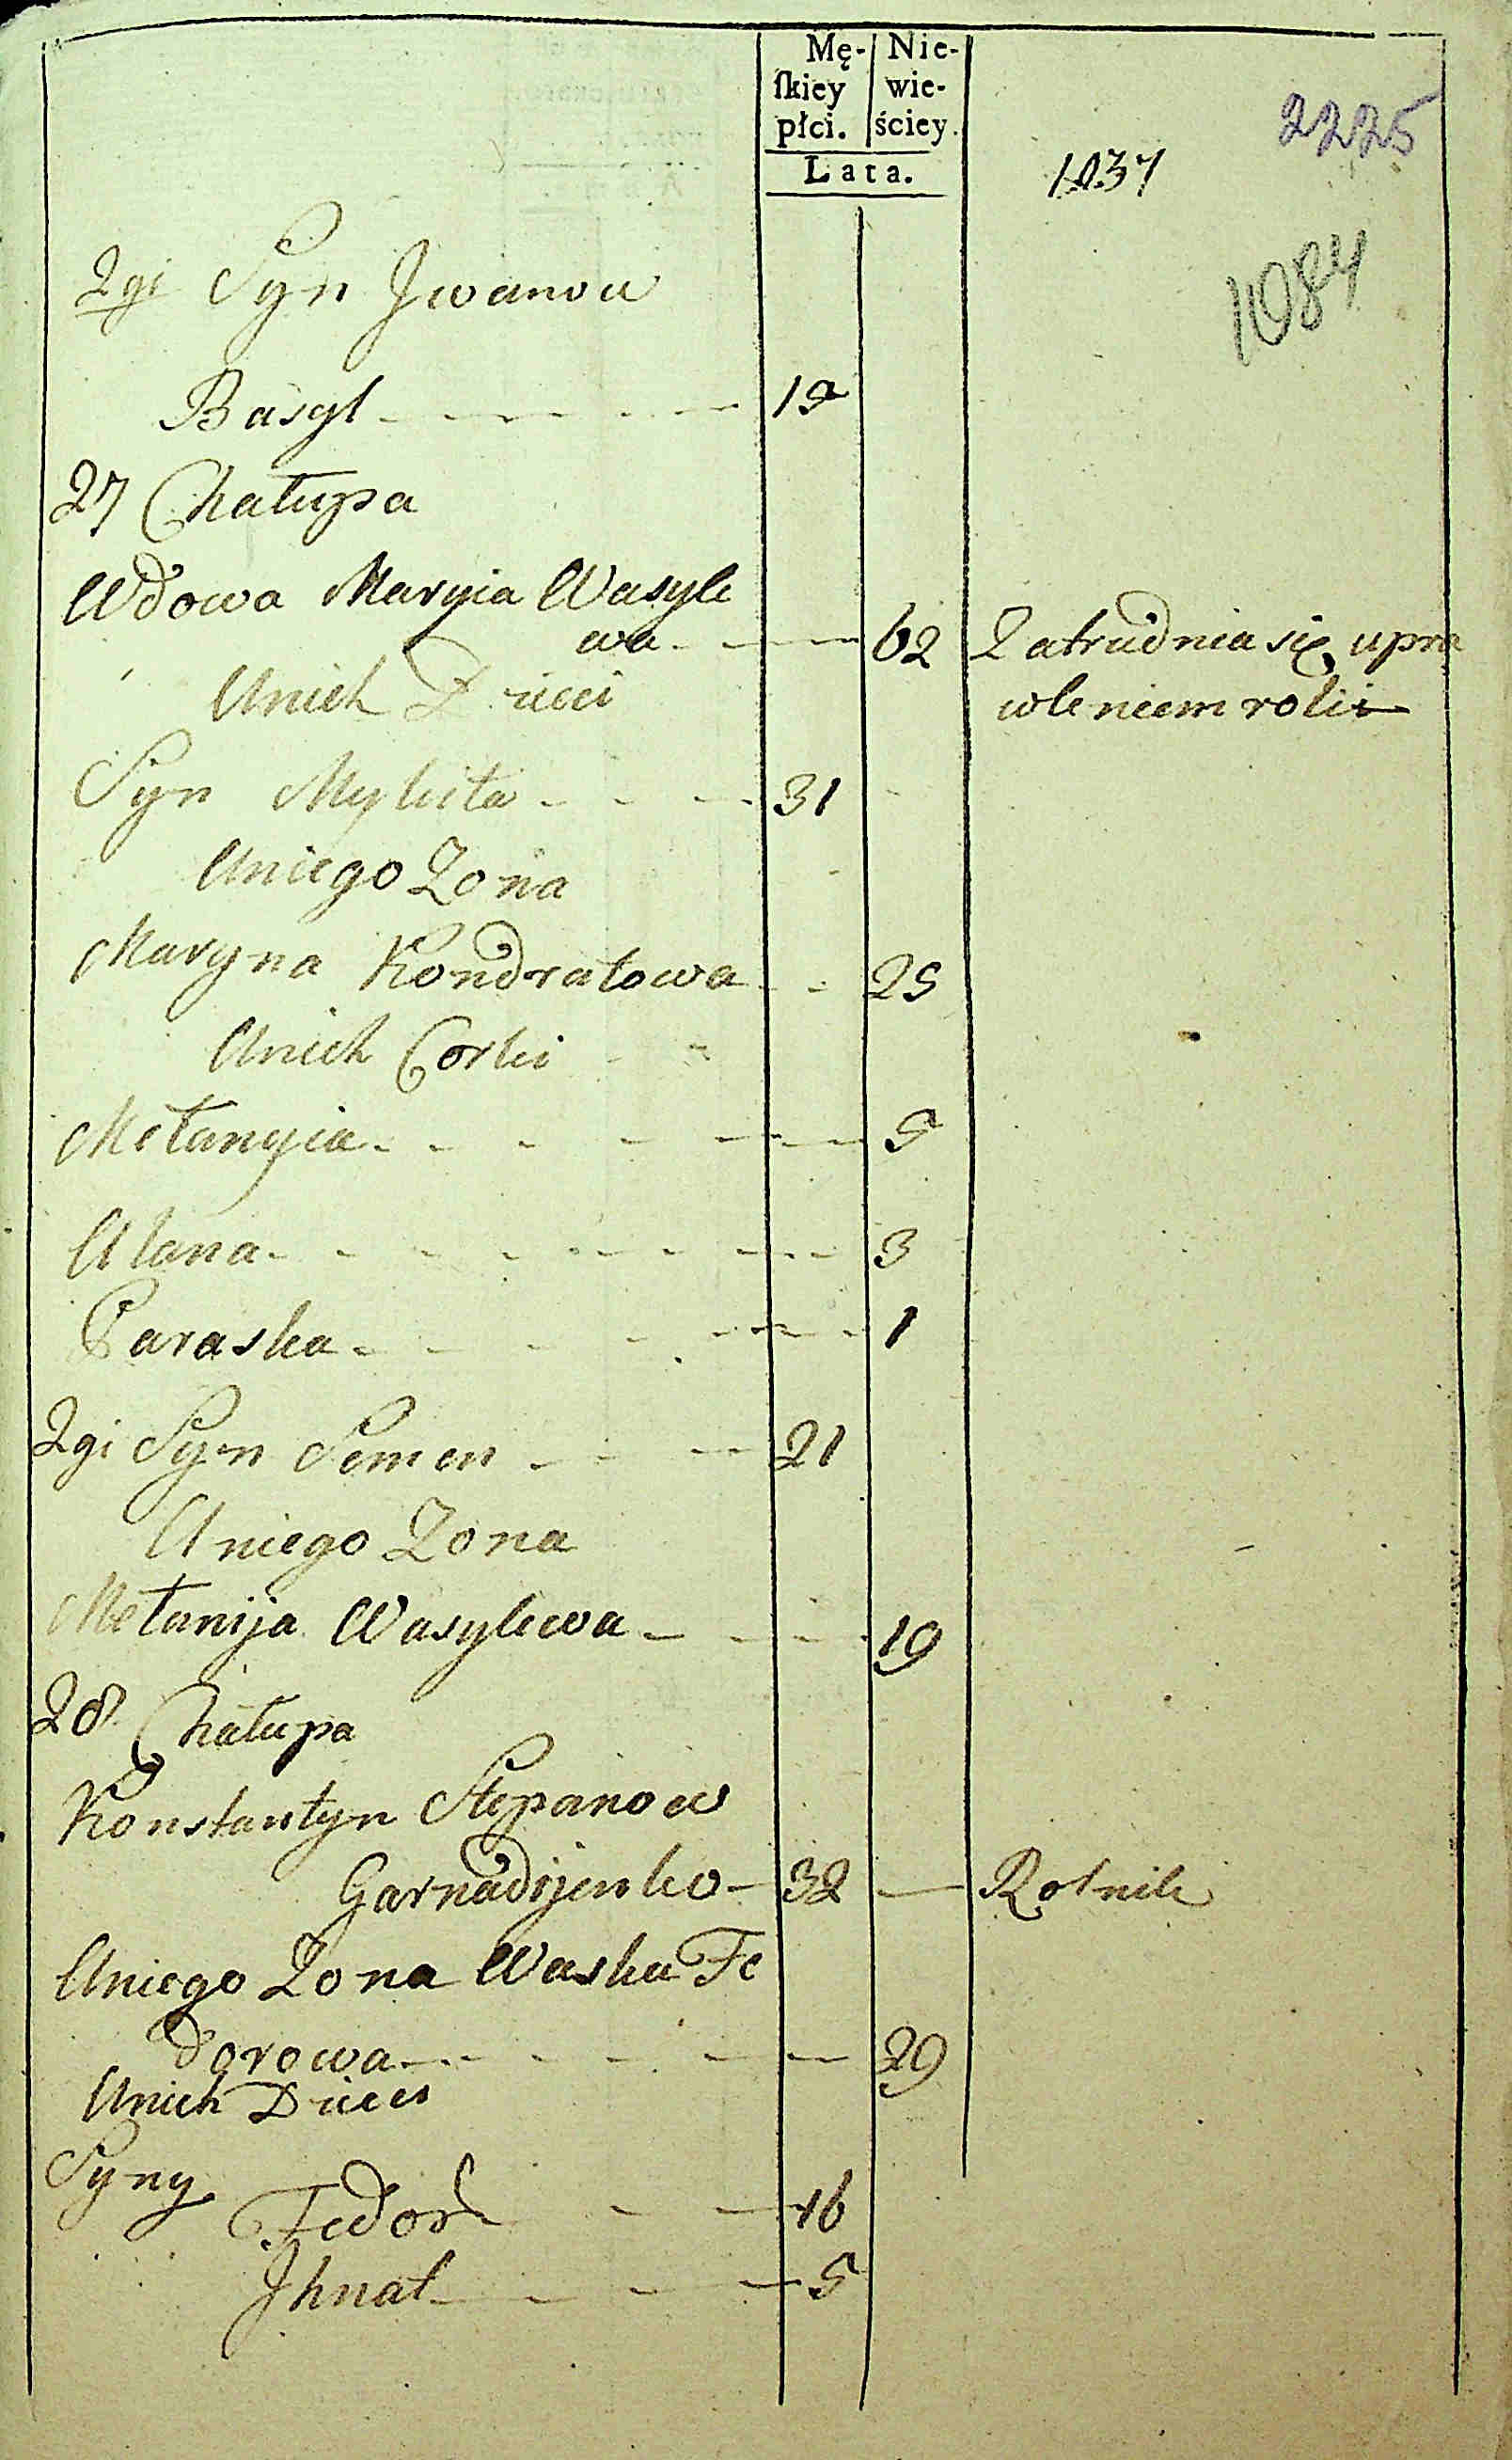 Mę- Nie-
ſkiey wie-
płci. ściey.
Lata.
2225
1037
1084
2gi Syn Jwanow
Basyl 19
27 Chałupa
Wdowa Maryia Wasyle
wa 62 Zatrudnia się upra
Unich Dzieci wleniem rolii
Syn Mykita 31
Uniego Zona
Maryna Kondratowa 25
Unich Corki
Mełanyia 5
Ulana 3
Paraska 1
2gi Syn Semen 21
Uniego Zona
Mełanija Wasylewa 19
28 Chałupa
Konstantyn Stepanow
Garnadijenko 32 Rolnik
Uniego Zona Waska Fe
dorowa 29
Unich Dzieci
Syny
Fedor 16
Jhnat 5